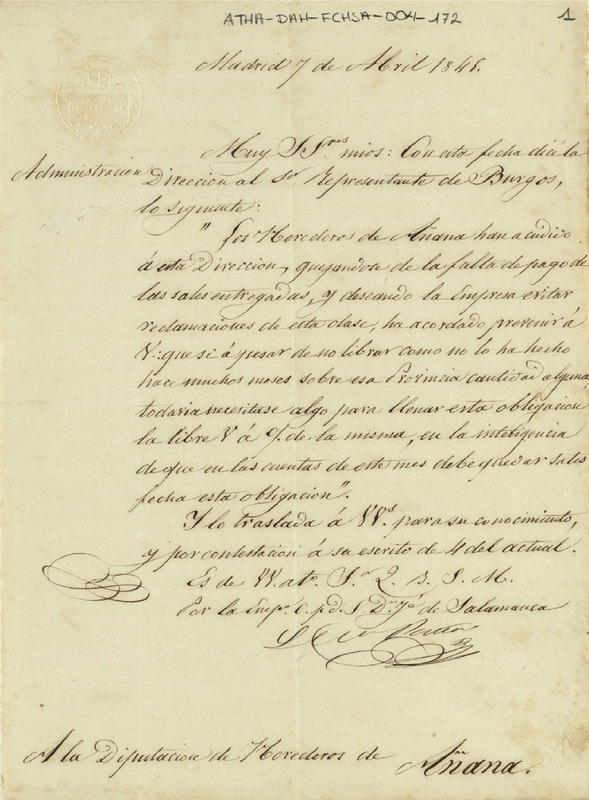 ATHA-DAH-FCHSA-004-172
1
Madrid 7 de Abril 184
Muy S.S.res mios: Con esta fecha dice la
Administracion
Direccion al Sor. Representante de Burgos,
lo siguiente:
"Los Herederos de Añana han acudido
á esta Direccion, quejandose de la falta de pago de
las sales entregadas, y deseando la Empresa evitar
reclamaciones de esta clase, ha acordado prevenir á
V: que si á pesar de no librar como no lo ha hecho
hace muchos meses sobre esa Provincia cantidad alguna,
todavia necesitase algo para llenar esta obligacion
la libre V á C/. de la misma, en la inteligencia
de que en las cuentas de este mes debe quedar satis
fecha esta obligacion".
Y lo traslada á VV.s para su conocimiento,
y por contestacion á su escrito de 4 del actual.
Es de VV. ato. S.r Q. s. S. M.
Por la Empa. C. p. d. S. Dn. Jé. de Salamanca
A la Diputacion de Herederos de Añana.